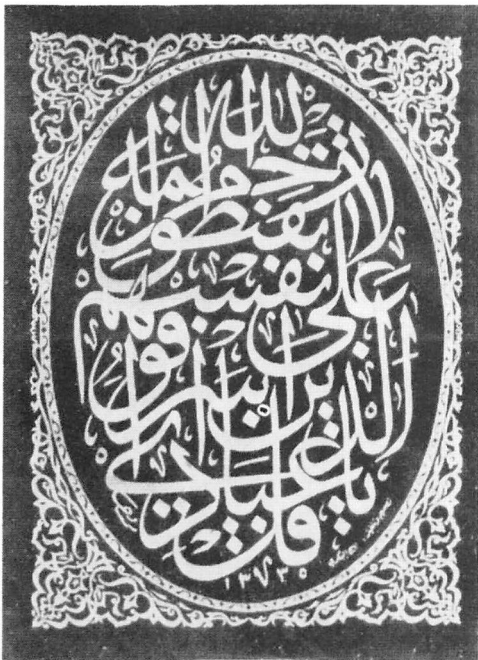 قل يا عبادي
الذين أسرفوا
على أنفسهم
لا تقنطوا من رحمة
الله
١٣٧٣ ه